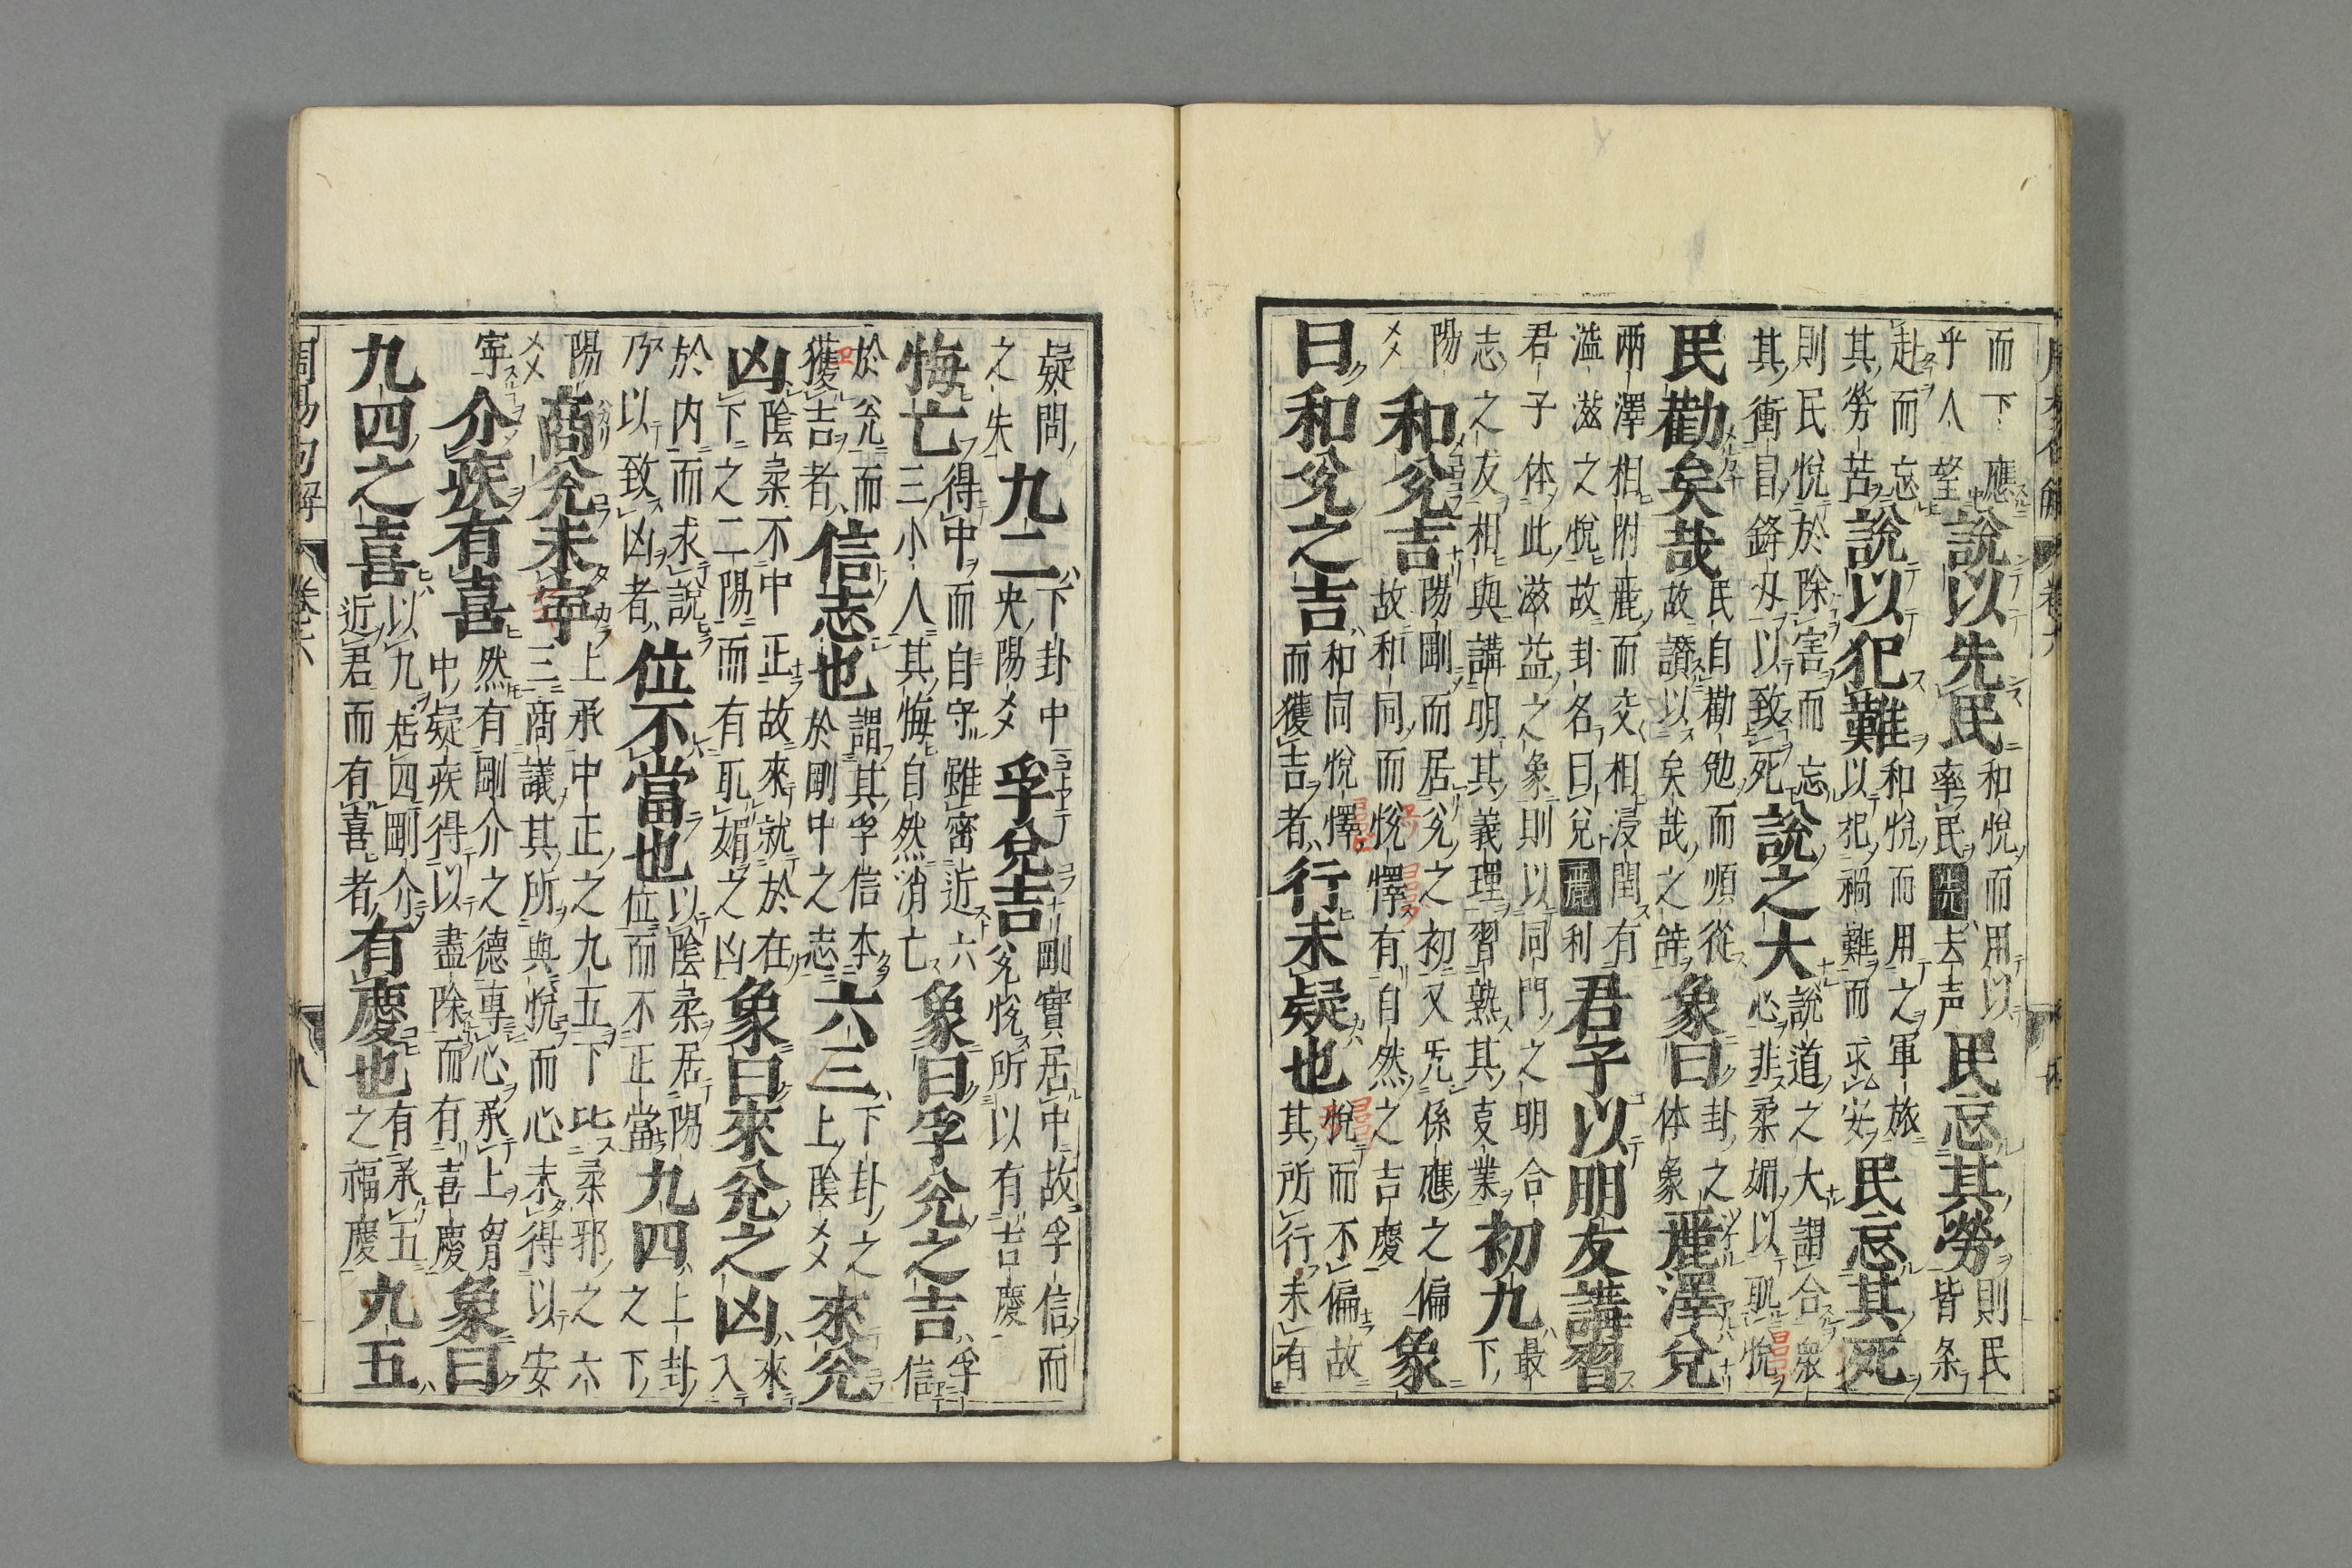 而下應乎人望說以先民和悅而用以率民先去声民忘其勞則民皆条
赴而忘其勞苦說以犯難和悅而用之軍旅以犯禍難而求安民忘其死
則民悅於除害而忘其衝冒鋒刃以致死說之大說道之大謂合衆心非柔媚以耴悅
民勸矣哉民自勸勉而順從故讃以矣哉之辞象曰卦之体象麗澤兌
兩澤相附麗而交相浸閏有滋滋之悅故卦名曰兌麗利君子以朋友講習
君子体此滋益之象則以同門之明合志之友相與講明其義理習熟其叓業初九最下
陽乄和兌吉陽剛而居兌之初又旡係應之偏故和同而悅懌有自然之吉慶象
曰和兌之吉和同悅懌而獲吉者行未疑也悅而不偏故其所行未有
疑問之失九二下卦中央陽乄孚兌吉剛實居中故孚信而兌悅所以有吉慶
悔亡得中而自守雖密近六三小人其悔自然消亡象曰孚兌之吉孚信
於兌而獲吉者信志也謂其孚信本於剛中之志六三下卦之上陰乄來兌
凶陰柔不中正故來就於在下之二陽而有耴媚之凶象曰來兌之凶來入
於内而求說乃以致凶者位不當也以陰柔居陽位而不正當九四上卦之下
陽乄商兌未寧上承中正之九五下比柔邪之六三商議其所與悅而心未得以安
寧介疾有喜然有剛介之德專心承上中疑疾得以盡除而有喜慶象曰
九四之喜以九居四剛介近君而有喜者有慶也有承五之福慶九五
周易句解 卷六 八